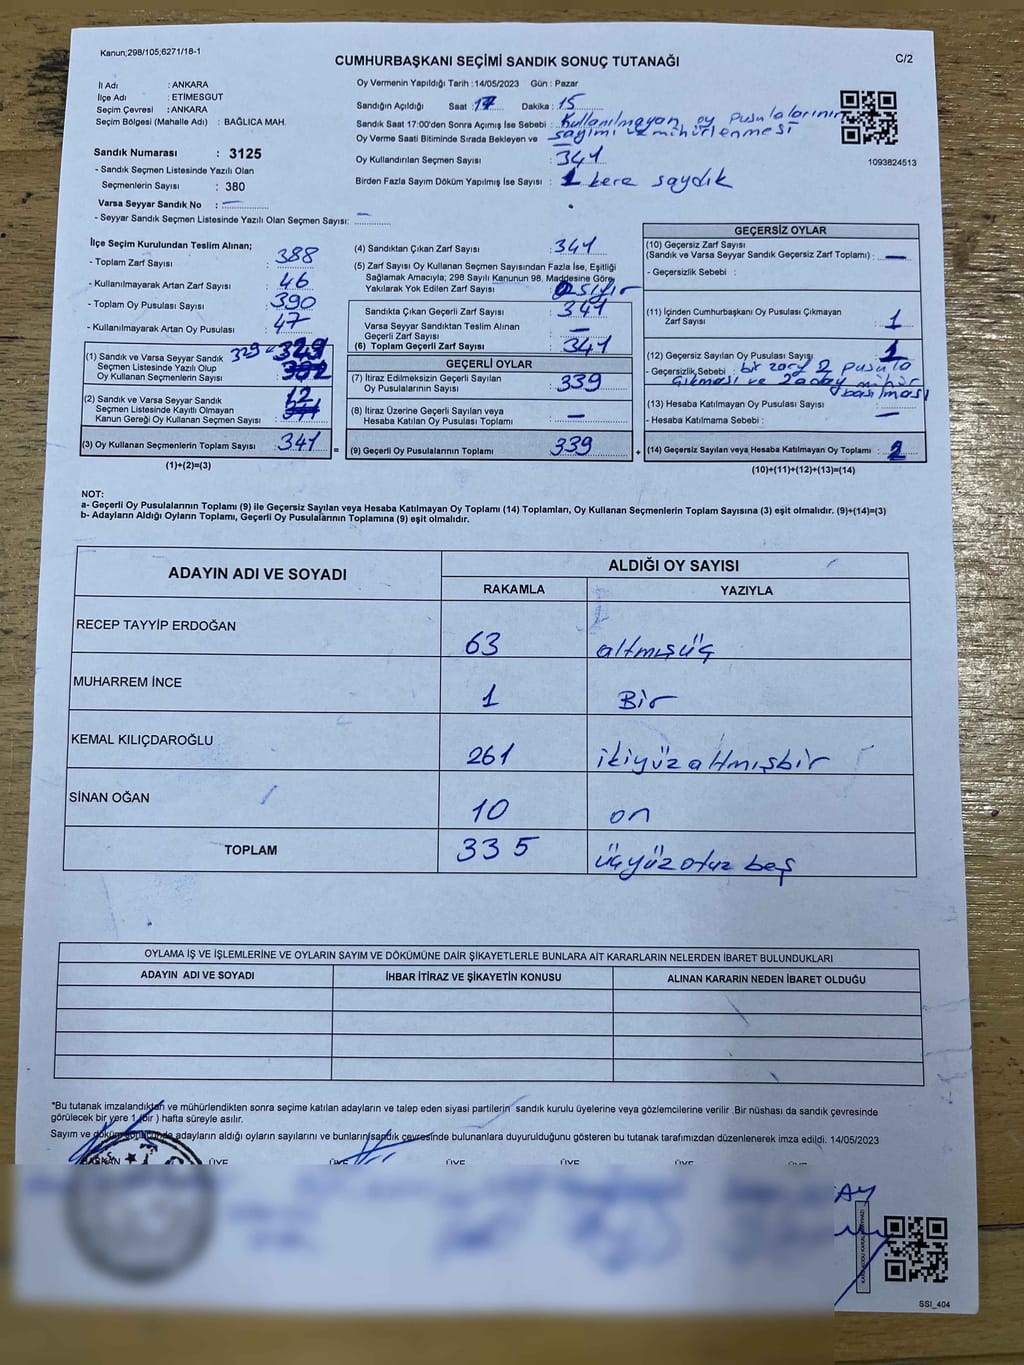 Kanun;298/105;6271/18-1
CUMHURBAŞKANI SEÇİMİ SANDIK SONUÇ TUTANAĞI
C/2
İl Adı : ANKARA
İlçe Adı : ETİMESGUT
Seçim Çevresi : ANKARA
Seçim Bölgesi (Mahalle Adı) : BAĞLICA MAH.
Sandık Numarası : 3125
- Sandık Seçmen Listesinde Yazılı Olan
Seçmenlerin Sayısı : 380
Varsa Seyyar Sandık No : —
- Seyyar Sandık Seçmen Listesinde Yazılı Olan Seçmen Sayısı: —
Oy Vermenin Yapıldığı Tarih : 14/05/2023 Gün : Pazar
Sandığın Açıldığı Saat : 17 Dakika : 15
Sandık Saat 17:00'den Sonra Açılmış İse Sebebi : Kullanılmayan oy pusulalarının
sayımı ve mühürlenmesi
Oy Verme Saati Bitiminde Sırada Bekleyen ve
Oy Kullandırılan Seçmen Sayısı : 341
Birden Fazla Sayım Döküm Yapılmış İse Sayısı : 1 kere saydık
1093824513
İlçe Seçim Kurulundan Teslim Alınan;
- Toplam Zarf Sayısı : 388
- Kullanılmayarak Artan Zarf Sayısı : 46
- Toplam Oy Pusulası Sayısı : 390
- Kullanılmayarak Artan Oy Pusulası : 47
(1) Sandık ve Varsa Seyyar Sandık
Seçmen Listesinde Yazılı Olup
Oy Kullanan Seçmenlerin Sayısı : 329 329
(2) Sandık ve Varsa Seyyar Sandık
Seçmen Listesinde Kayıtlı Olmayan
Kanun Gereği Oy Kullanan Seçmen Sayısı : 12
(3) Oy Kullanan Seçmenlerin Toplam Sayısı : 341 =
(1)+(2)=(3)
(4) Sandıktan Çıkan Zarf Sayısı : 341
(5) Zarf Sayısı Oy Kullanan Seçmen Sayısından Fazla İse, Eşitliği
Sağlamak Amacıyla; 298 Sayılı Kanunun 98. Maddesine Göre
Yakılarak Yok Edilen Zarf Sayısı : 0 sıfır
Sandıkta Çıkan Geçerli Zarf Sayısı : 341
Varsa Seyyar Sandıktan Teslim Alınan
Geçerli Zarf Sayısı : —
(6) Toplam Geçerli Zarf Sayısı : 341
GEÇERLİ OYLAR
(7) İtiraz Edilmeksizin Geçerli Sayılan
Oy Pusulalarının Sayısı : 339
(8) İtiraz Üzerine Geçerli Sayılan veya
Hesaba Katılan Oy Pusulası Toplamı : —
(9) Geçerli Oy Pusulalarının Toplamı : 339 +
GEÇERSİZ OYLAR
(10) Geçersiz Zarf Sayısı
(Sandık ve Varsa Seyyar Sandık Geçersiz Zarf Toplamı) : —
- Geçersizlik Sebebi :
(11) İçinden Cumhurbaşkanı Oy Pusulası Çıkmayan
Zarf Sayısı : 1
(12) Geçersiz Sayılan Oy Pusulası Sayısı : 1
- Geçersizlik Sebebi : bir zarf 2 pusula
çıkması ve 2 aday mühür
basılması
(13) Hesaba Katılmayan Oy Pusulası Sayısı : —
- Hesaba Katılmama Sebebi :
(14) Geçersiz Sayılan veya Hesaba Katılmayan Oy Toplamı : 2
(10)+(11)+(12)+(13)=(14)
NOT:
a- Geçerli Oy Pusulalarının Toplamı (9) ile Geçersiz Sayılan veya Hesaba Katılmayan Oy Toplamı (14) Toplamları, Oy Kullanan Seçmenlerin Toplam Sayısına (3) eşit olmalıdır. (9)+(14)=(3)
b- Adayların Aldığı Oyların Toplamı, Geçerli Oy Pusulalarının Toplamına (9) eşit olmalıdır.
ADAYIN ADI VE SOYADI
ALDIĞI OY SAYISI
RAKAMLA YAZIYLA
RECEP TAYYİP ERDOĞAN 63 altmışüç
MUHARREM İNCE 1 Bir
KEMAL KILIÇDAROĞLU 261 ikiyüzaltmışbir
SİNAN OĞAN 10 on
TOPLAM 335 üçyüzotuz beş
OYLAMA İŞ VE İŞLEMLERİNE VE OYLARIN SAYIM VE DÖKÜMÜNE DAİR ŞİKAYETLERLE BUNLARA AİT KARARLARIN NELERDEN İBARET BULUNDUKLARI
ADAYIN ADI VE SOYADI İHBAR İTİRAZ VE ŞİKAYETİN KONUSU ALINAN KARARIN NEDEN İBARET OLDUĞU
*Bu tutanak imzalandıktan ve mühürlendikten sonra seçime katılan adayların ve talep eden siyasi partilerin sandık kurulu üyelerine veya gözlemcilerine verilir .Bir nüshası da sandık çevresinde
görülecek bir yere 1 (bir ) hafta süreyle asılır.
Sayım ve döküm sonucunda adayların aldığı oyların sayılarını ve bunların sandık çevresinde bulunanlara duyurulduğunu gösteren bu tutanak tarafımızdan düzenlenerek imza edildi. 14/05/2023
BAŞKAN ÜYE ÜYE ÜYE ÜYE ÜYE ÜYE
SSI_404